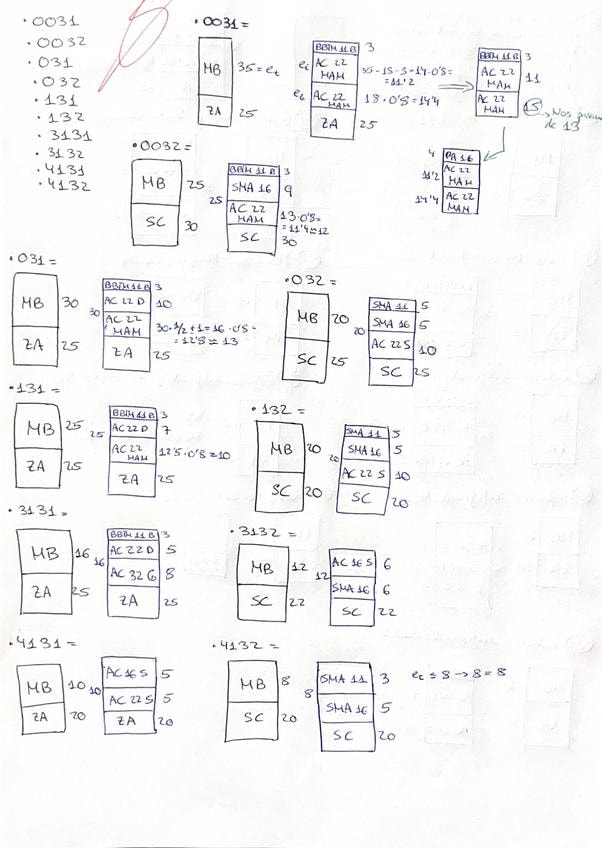 ·0031
·0032
·031
·032
·131
·132
·3131
·3132
·4131
·4132
·0031=
MB 35 = et
ZA 25
BBTM 11 B 3
AC 22 MAM 35-18-3=14·0'8=
=11'2
AC 22 MAM 18·0'8=14'4
ZA 25
BBTM 11 B 3
AC 22 MAM 11
AC 22 MAM 13 → Nos
de 13
4 PA 16
11'2 AC 22 MAM
14'4 AC 22 MAM
·0032=
MB 25
SC 30
25
BBTM 11 B 3
SMA 16 9
AC 22 MAM 13·0'8=
=11'4≈12
SC 30
·031=
MB 30
ZA 25
30
BBTM 11 B 3
AC 22 D 10
AC 22 MAM 30·1/2+1=16·0'8=
=12'8≈13
ZA 25
·032=
MB 20
SC 25
20
SMA 11 5
SMA 16 5
AC 22 S 10
SC 25
·131=
MB 25
ZA 25
25
BBTM 11 B 3
AC 22 D 7
AC 22 MAM 12'5·0'8=10
ZA 25
·132=
MB 20
SC 20
20
SMA 11 5
SMA 16 5
AC 22 S 10
SC 20
·3131=
MB 16
ZA 25
16
BBTM 11 B 3
AC 22 D 5
AC 32 G 8
ZA 25
·3132=
MB 12
SC 22
12
AC 16 S 6
SMA 16 6
SC 22
·4131=
MB 10
ZA 20
10
AC 16 S 5
AC 22 S 5
ZA 20
·4132=
MB 8
SC 20
8
SMA 11 3
SMA 16 5
SC 20
ec ≤ 8 → 8 = 8